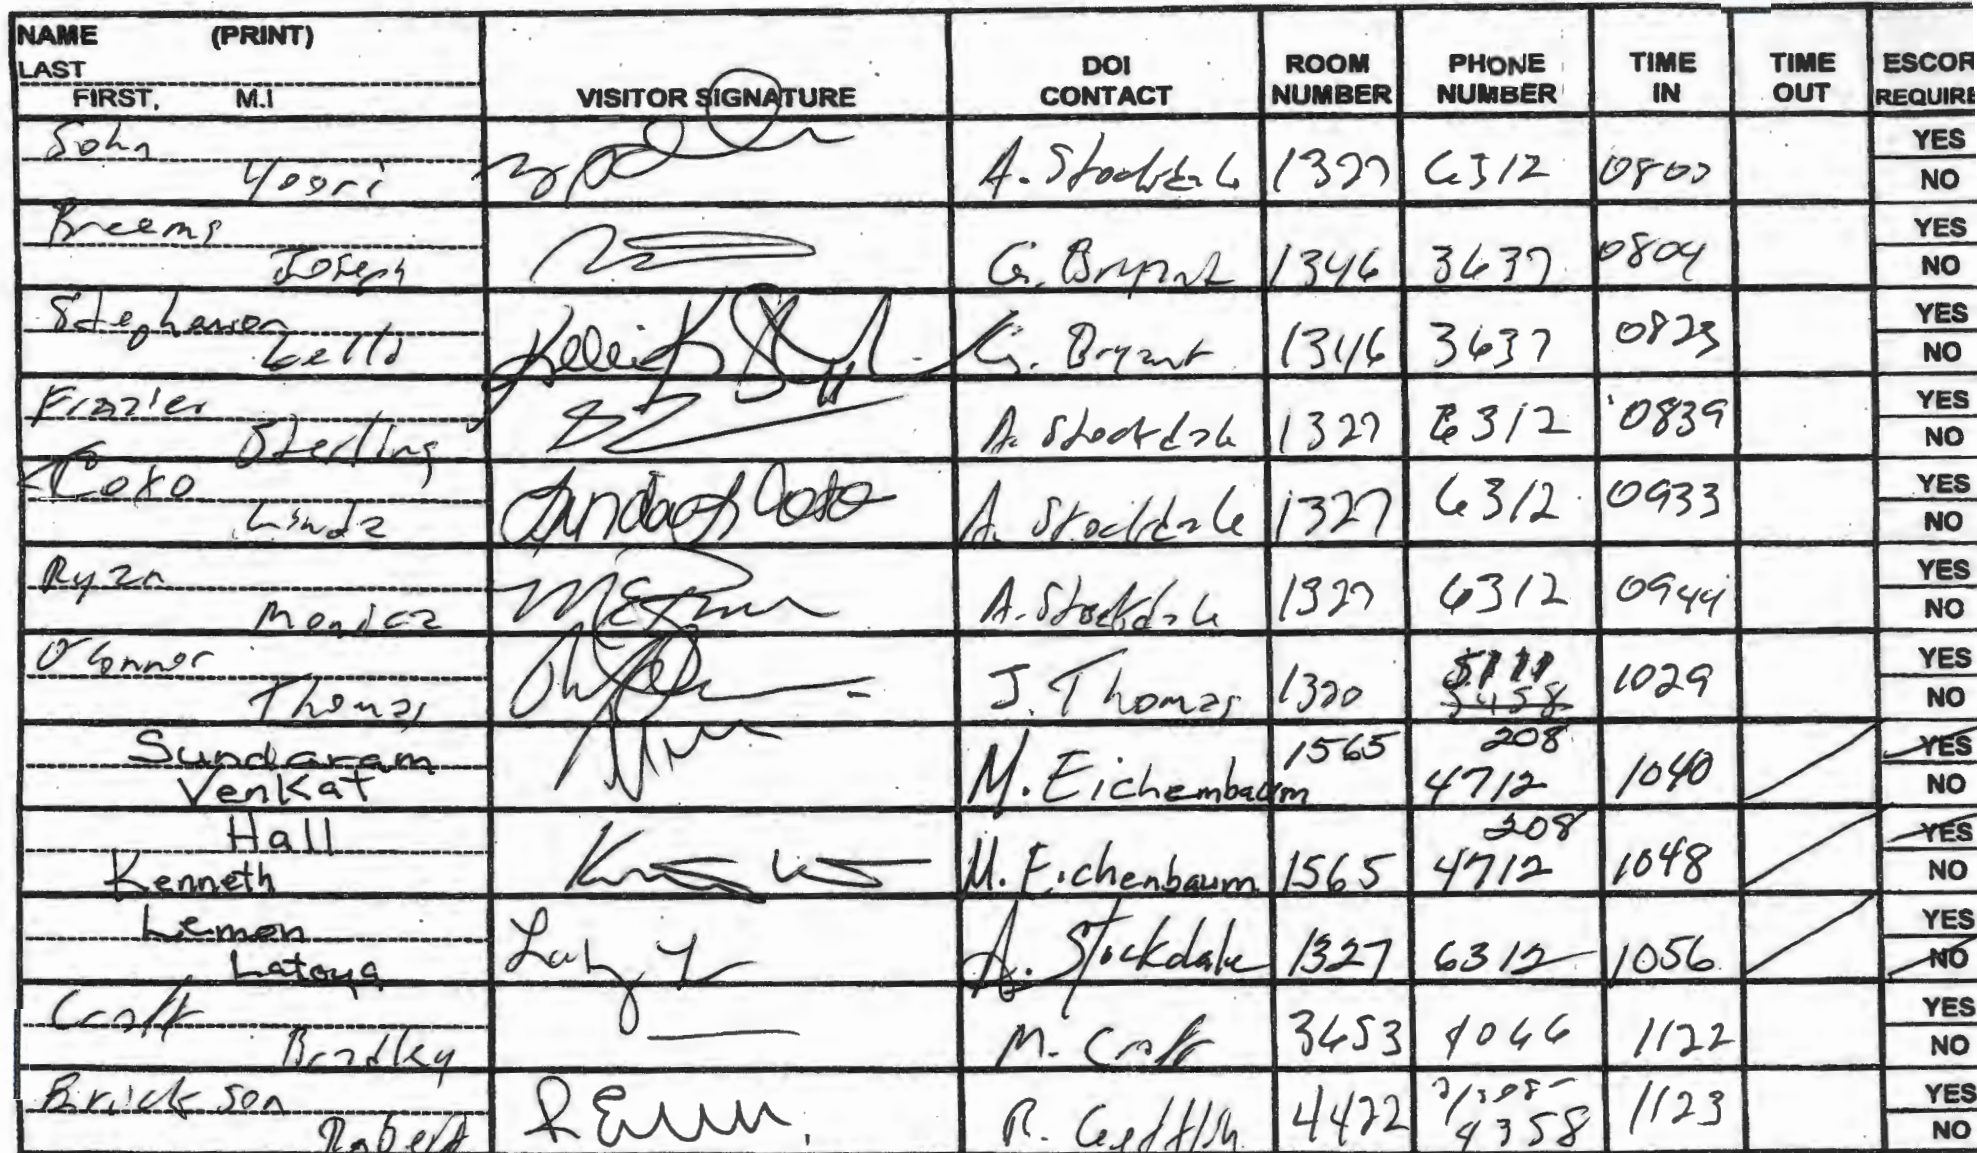 NAME (PRINT)
LAST
FIRST, M.I
VISITOR SIGNATURE
DOI CONTACT
ROOM NUMBER
PHONE NUMBER
TIME IN
TIME OUT
ESCOR
REQUIRE
Sohn
Yoori A. Stockdale 1327 6312 0800
YES
NO
Breems
Joseph G. Bryant 1346 3637 0804
YES
NO
Stephenson
G. Bryant 1346 3637 0823
YES
NO
Frazier
Sterling A. Stockdale 1327 6312 0839
YES
NO
Coto
Linda Linda Coto A. Stockdale 1327 6312 0933
YES
NO
Ryan
Monica A. Stockdale 1327 6312 0944
YES
NO
O'Connor
Thomas J. Thomas 1320 5111 1029
5458
YES
NO
Sundaram 1565 208
Venkat M. Eichembaum 4712 1040
YES
NO
Hall 208
Kenneth M. Eichenbaum 1565 4712 1048
YES
NO
Lemon
Latoya A. Stockdale 1327 6312 1056
YES
NO
Craft
Bradley M. Craft 3653 4066 1122
YES
NO
Erickson
Robert R. 4422 4358 1123
YES
NO